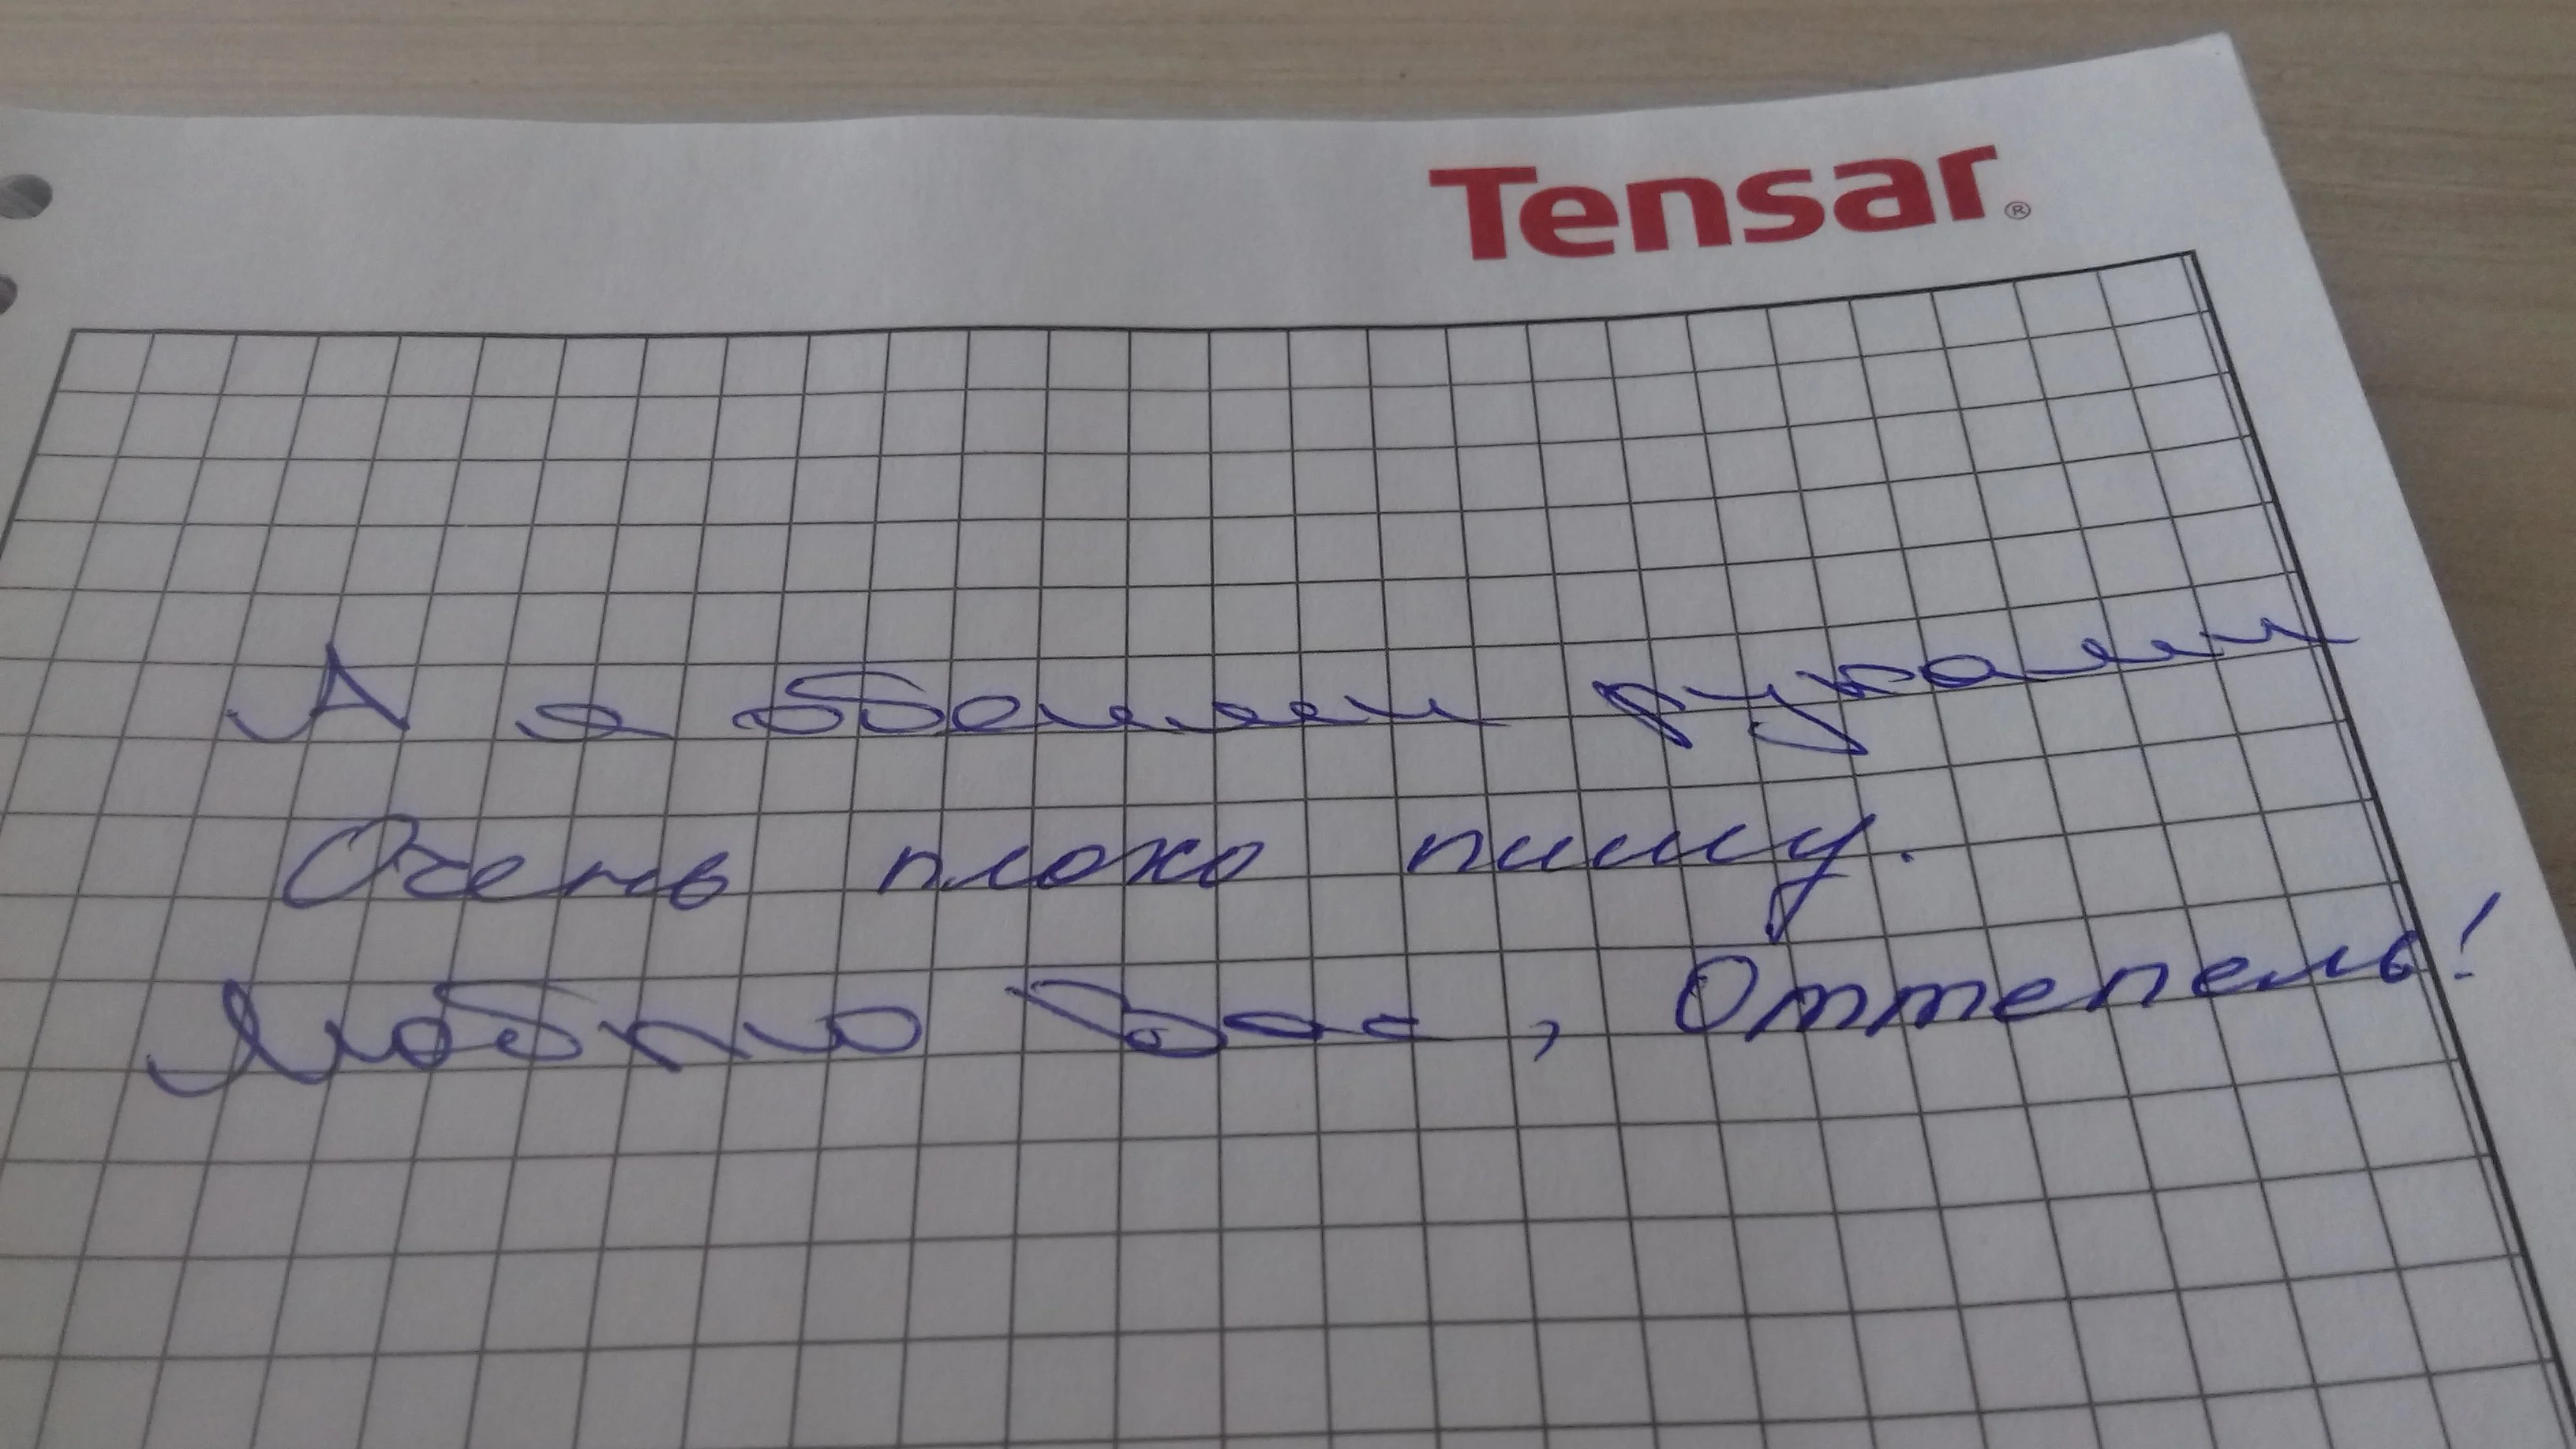 Tensar®
А я обеими руками
Очень плохо пишу.
Люблю Вас, Оттепель!